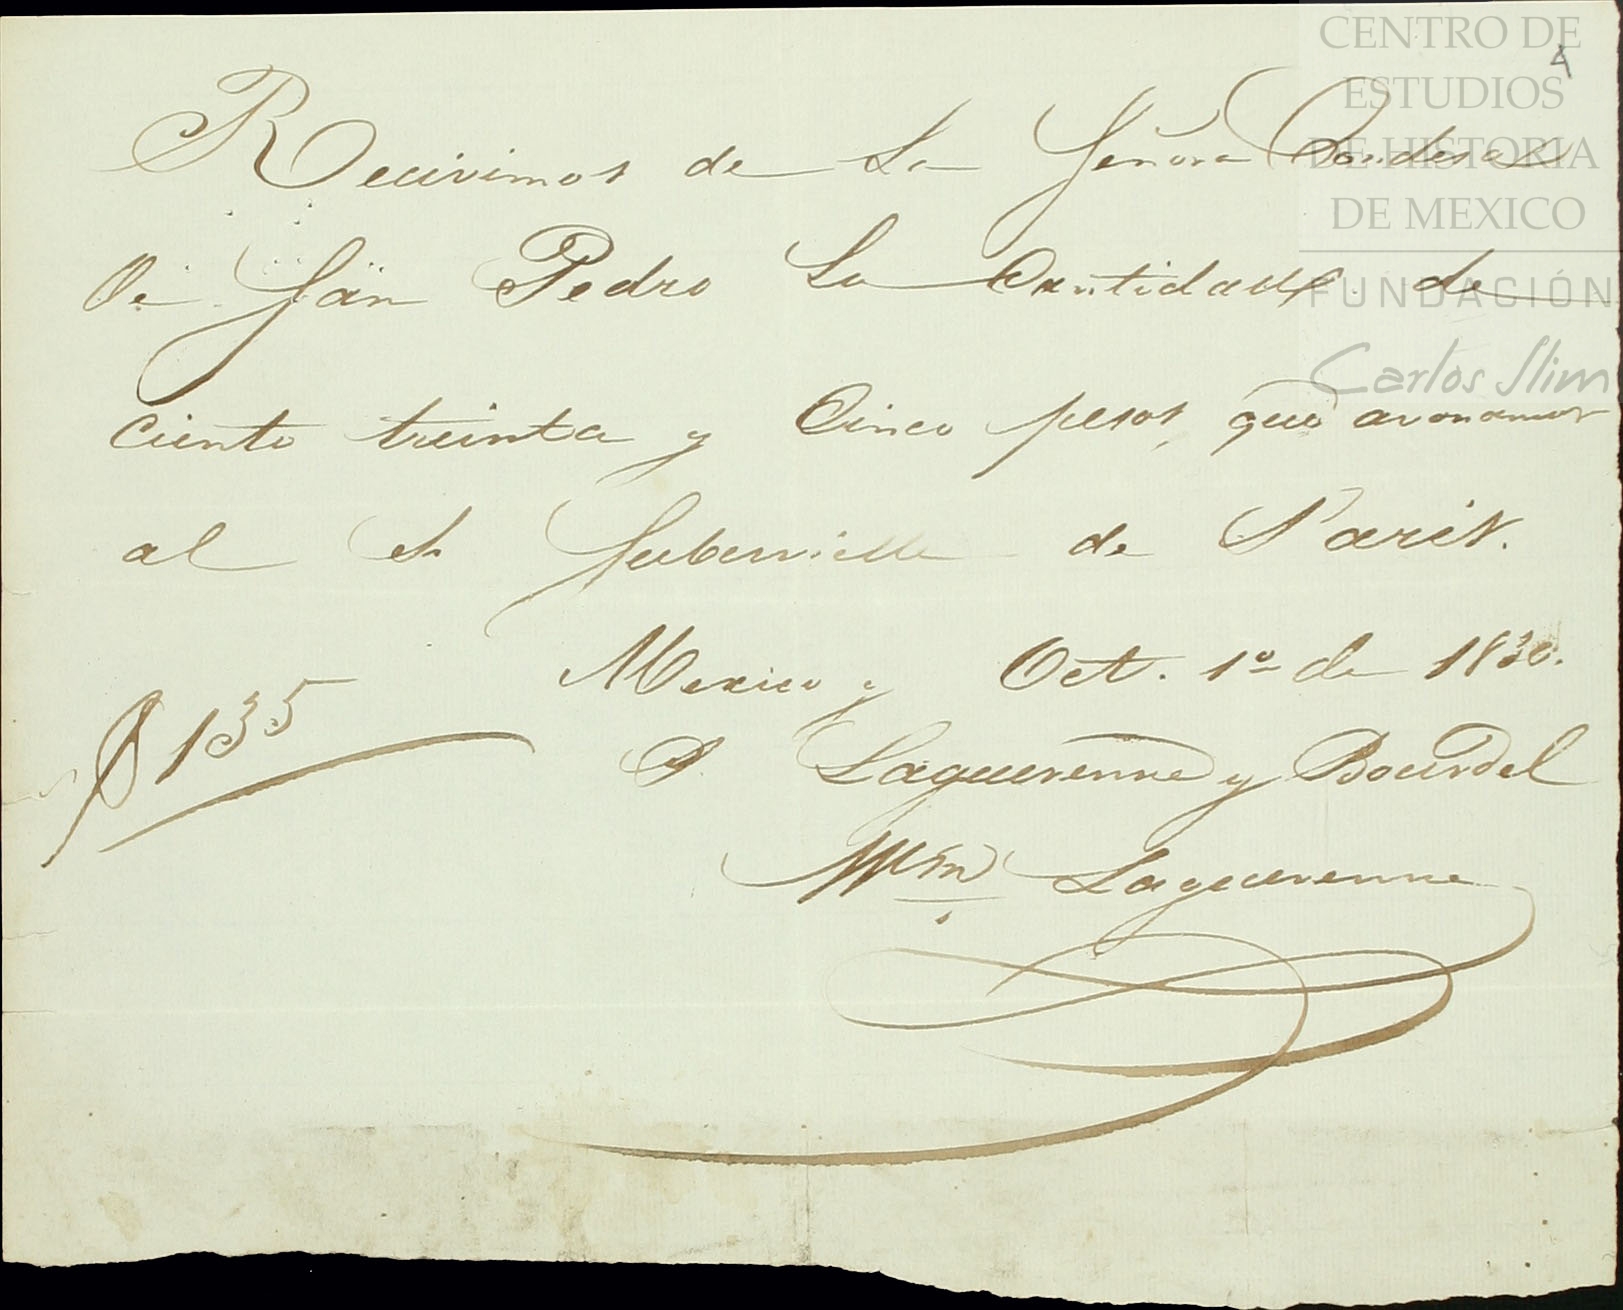 CENTRO DE
ESTUDIOS
DE HISTORIA
DE MEXICO
FUNDACIÓN
Carlos Slim
4
Recivimos de La Señora Condesa
De Sän Pedro La Cantidad de
Ciento treinta y Cinco pesos, que avonamos
al Sr Subervielle de Paris.
Mexico y Oct. 1º de 1830.
$ 135
P. Laguerenne y Bourdel
Wm Laguerenne